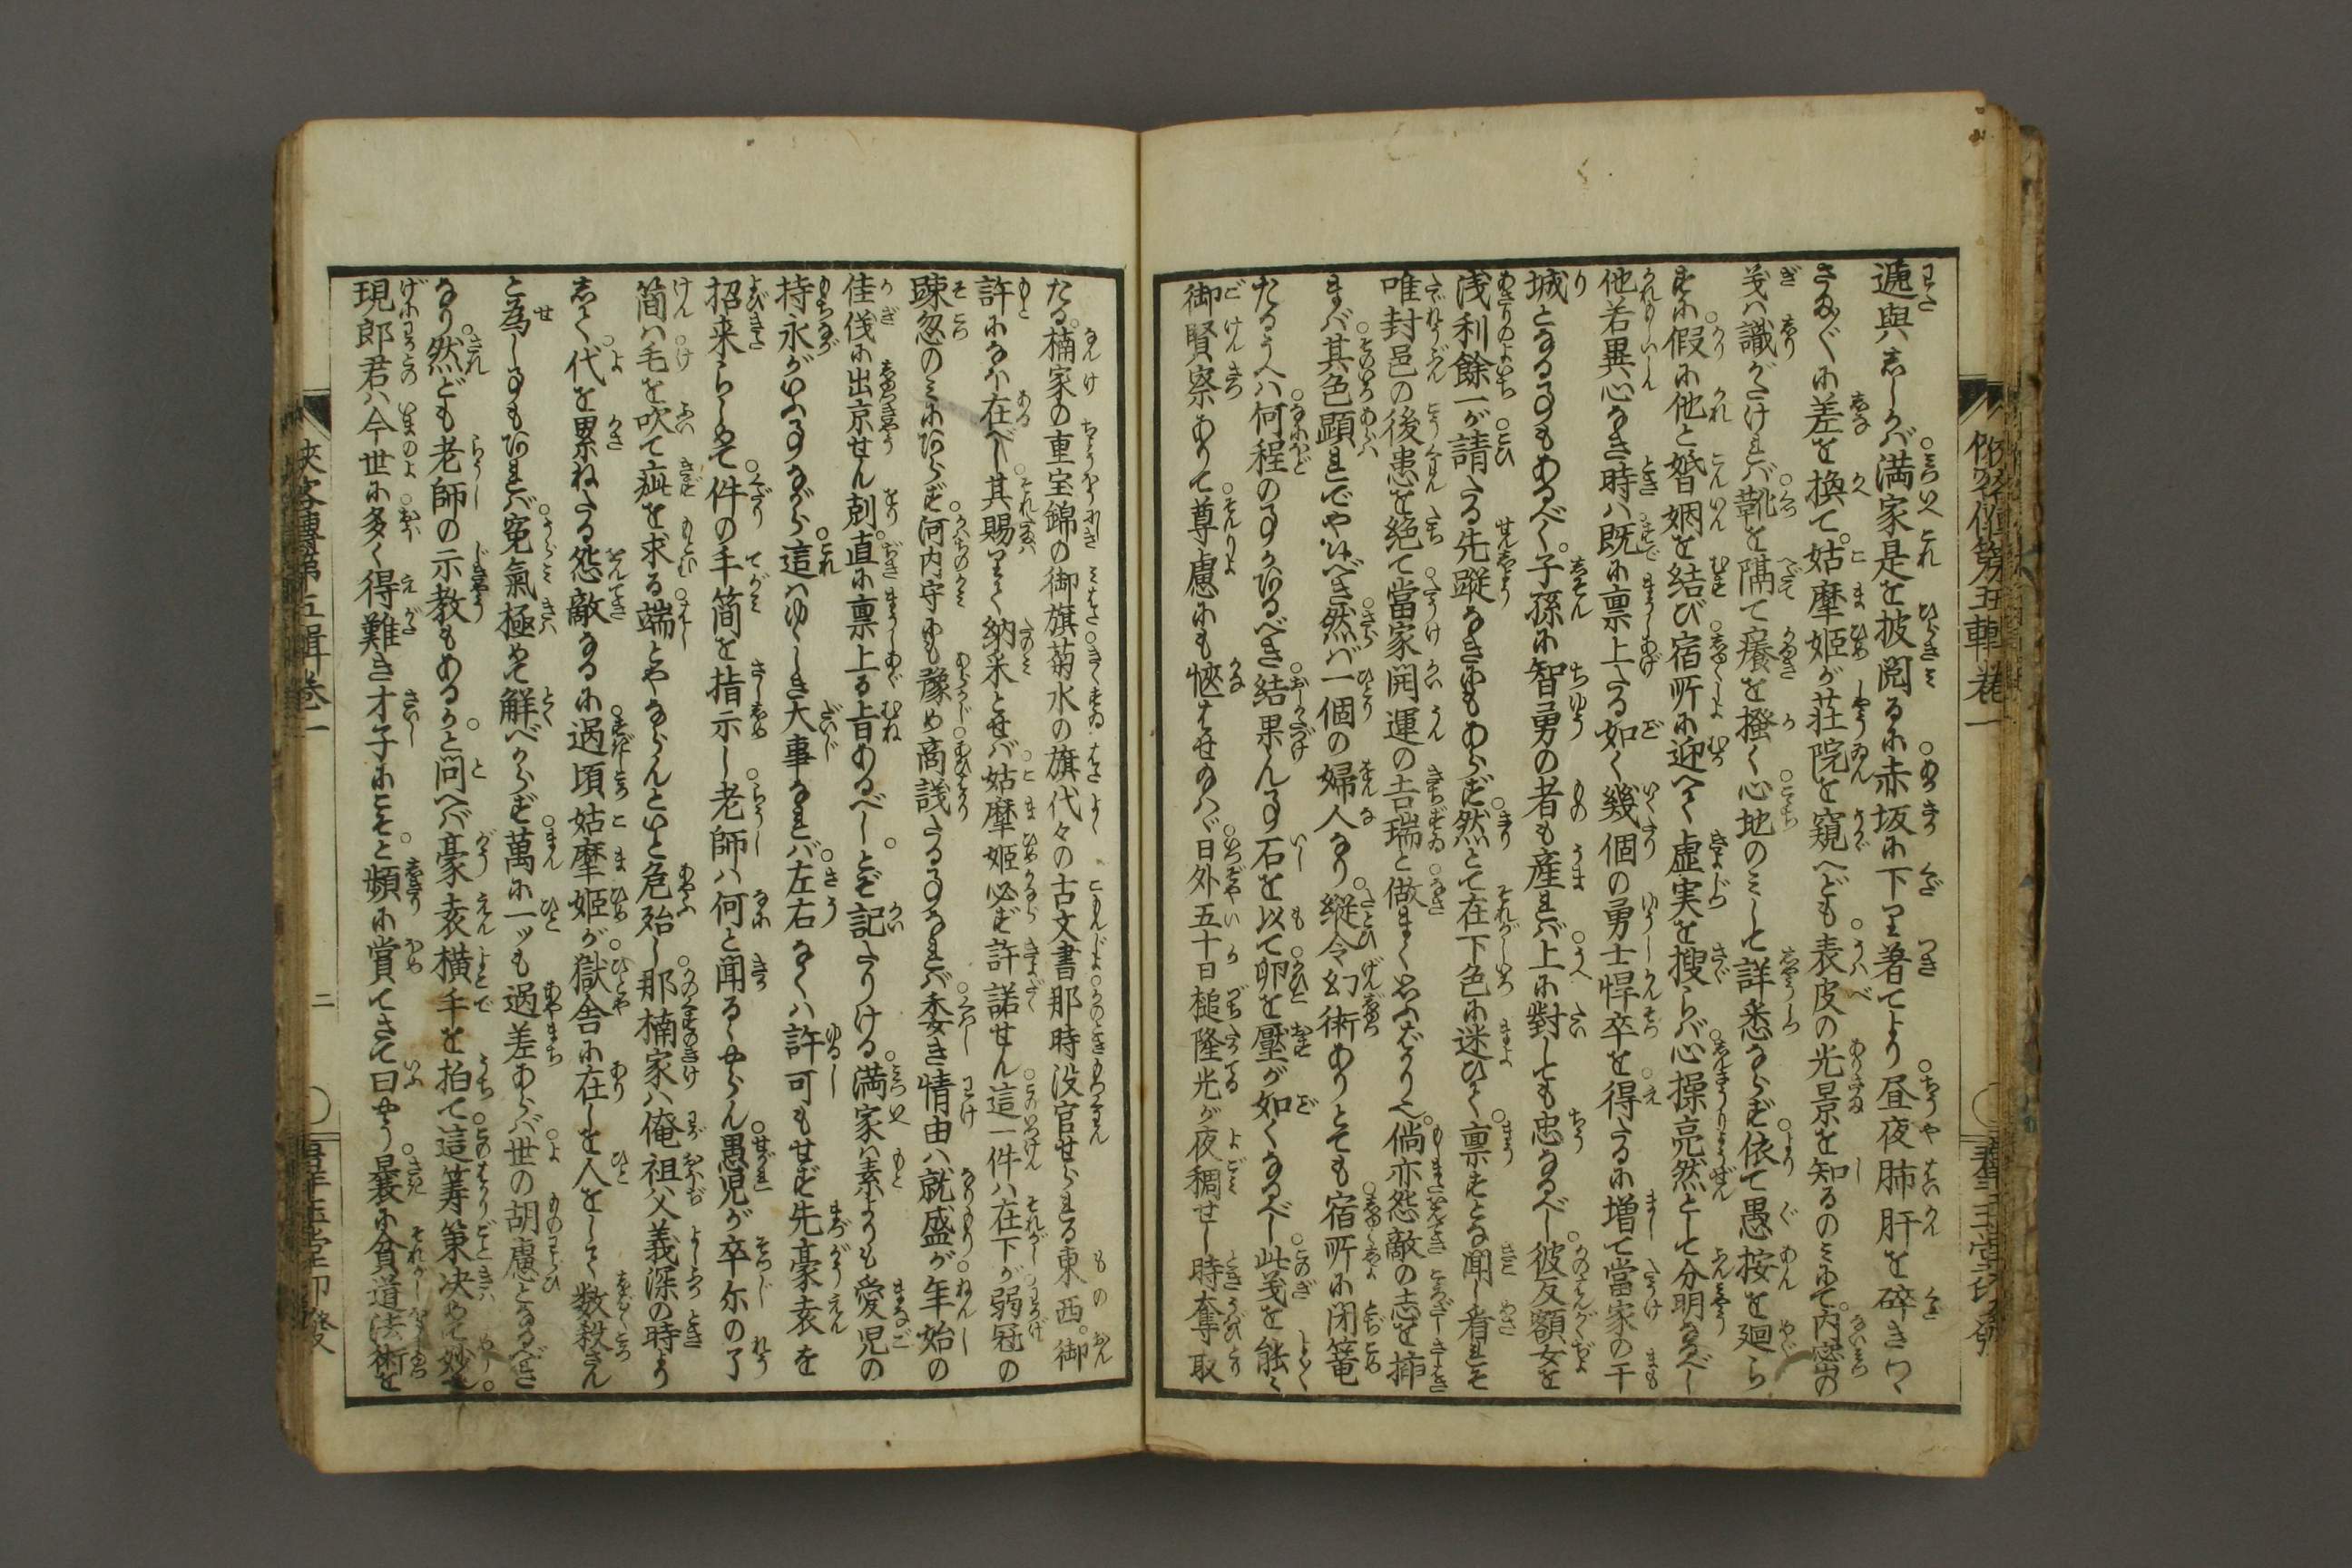 遞與しかば満家是を披閲るに赤坂に下り著てより昼夜肺肝を碎きつゝ
さま〴〵に差を換て姑摩姫が荘院を窺へども表皮の光景を知るのみにて内密の
義は識がたければ靴を隔て癢を掻く心地のみして詳悉ならず依て愚按を廻ら
すに假に他と婚姻を結び宿所に迎へて虚実を捜らば心操亮然として分明なるべし
他若異心なき時は既に禀上たる如く幾個の勇士悍卒を得たるに増て當家の干
城となる事もあるべく子孫に智勇の者も産れば上に對しても忠なるべし彼反額女を
浅利餘一が請たる先蹤なきにもあらず然とて在下色に迷ひて禀すとな聞し着れそ
唯封邑の後患を絶て當家開運の吉瑞と做まく思ふばかり也倘亦怨敵の志を挿
まば其色顕れでやは候べき然ば一個の婦人なり縦令幻術ありとても宿所に閉篭
たるうへは何程の事か候べき結果ん事石を以て卵を壓が如くなるべし此義を能く
御賢察ありて尊慮にも愜はせ給はゞ日外五十日槌隆光が夜稠せし時奪取
たる楠家の重宝錦の御旗菊水の旗代々の古文書那時没官せられる東西御
許になほ在べし其賜りて納采とせば姑摩姫必ず許諾せん這一件は在下が弱冠の
踈忽のみに候はず河内守にも豫め商議たる事なれば委き情由は就盛が年始の
佳儀に出京せん刻直に禀上る旨あるべしとぞ記たりける満家は素よりも愛児の
持永がいふ事ながら這はゆゝしき大事なれば左右なくは許可もせず先豪袁を
招来らして件の手簡を指示し老師は何と聞るゝやらん愚児が卒尓の了
簡は毛を吹て疵を求る端とやならんといと危殆し那楠家は俺祖父義深の時より
して代を累ねたる怨敵なるに過頃姑摩姫が獄舎に在しを人をして数殺さん
と為し事も候れば寃氣極めて解べからず萬に一ツも過差あらば世の胡慮となるべき
なり然ども老師の示教もあるかと問へば豪袁横手を拍て這筭策决めて妙也
現郎君は今世に多く得難き才子にこそと頻に賞てさて曰やう曩に貧道法術を
侠客傳第五輯巻一
二